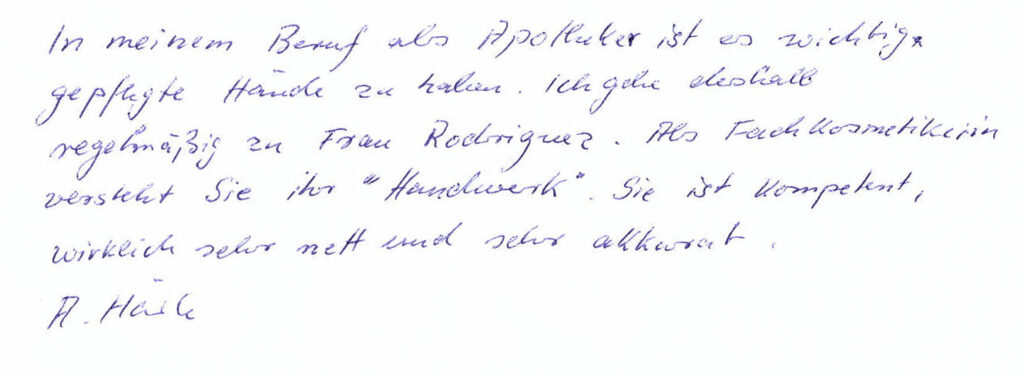 In meinem Beruf als Apotheker ist es wichtig,
gepflegte Hände zu haben. Ich gehe deshalb
regelmäßig zu Frau Rodriguez. Als Fachkosmetikerin
versteht Sie ihr "Handwerk". Sie ist kompetent,
wirklich sehr nett und sehr akkurat.
A.